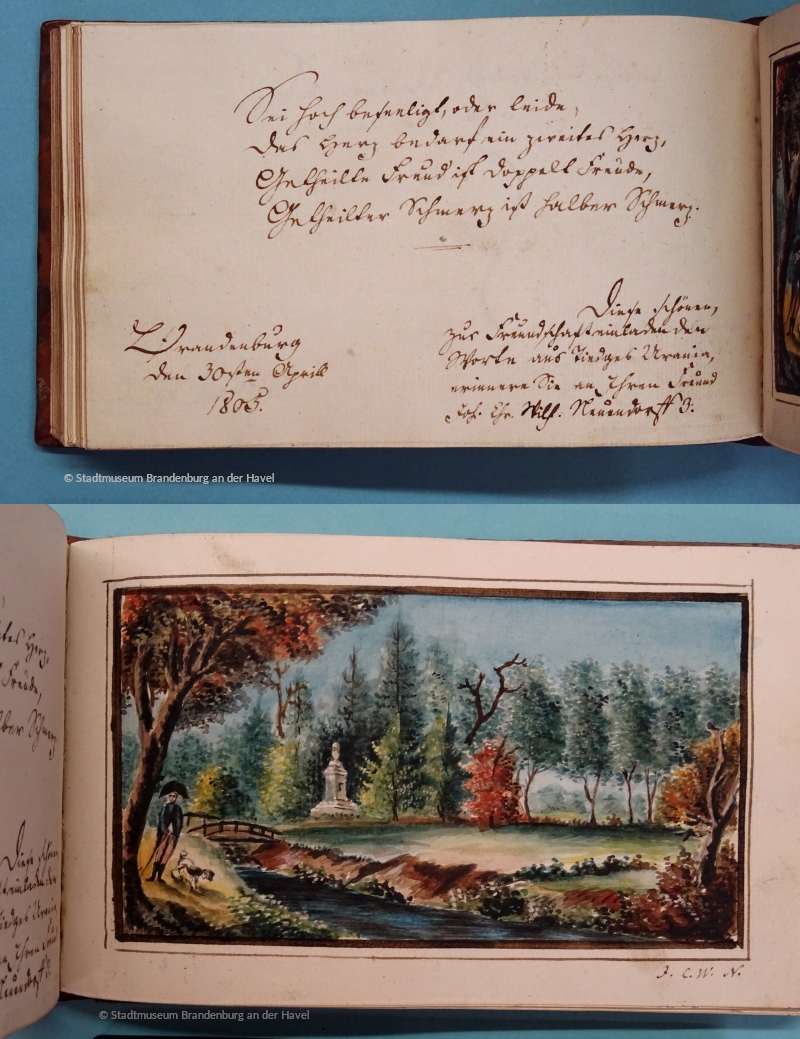 Sei hoch beseeligt, oder leide,
das Herz bedarf ein zweites Herz,
Getheilte Freud' ist doppelt Freude,
Getheilter Schmerz ist halber Schmerz.
Brandenburg
den 30sten Aprill
1805.
Diese schönen,
zur Freundschaft einladenden
Worte aus Tiedges Urania,
erinnere Sie an Ihren Freund
Joh. Chr. Wilh. Neuendorff 3.
© Stadtmuseum Brandenburg an der Havel
J. C. W. N.
© Stadtmuseum Brandenburg an der Havel